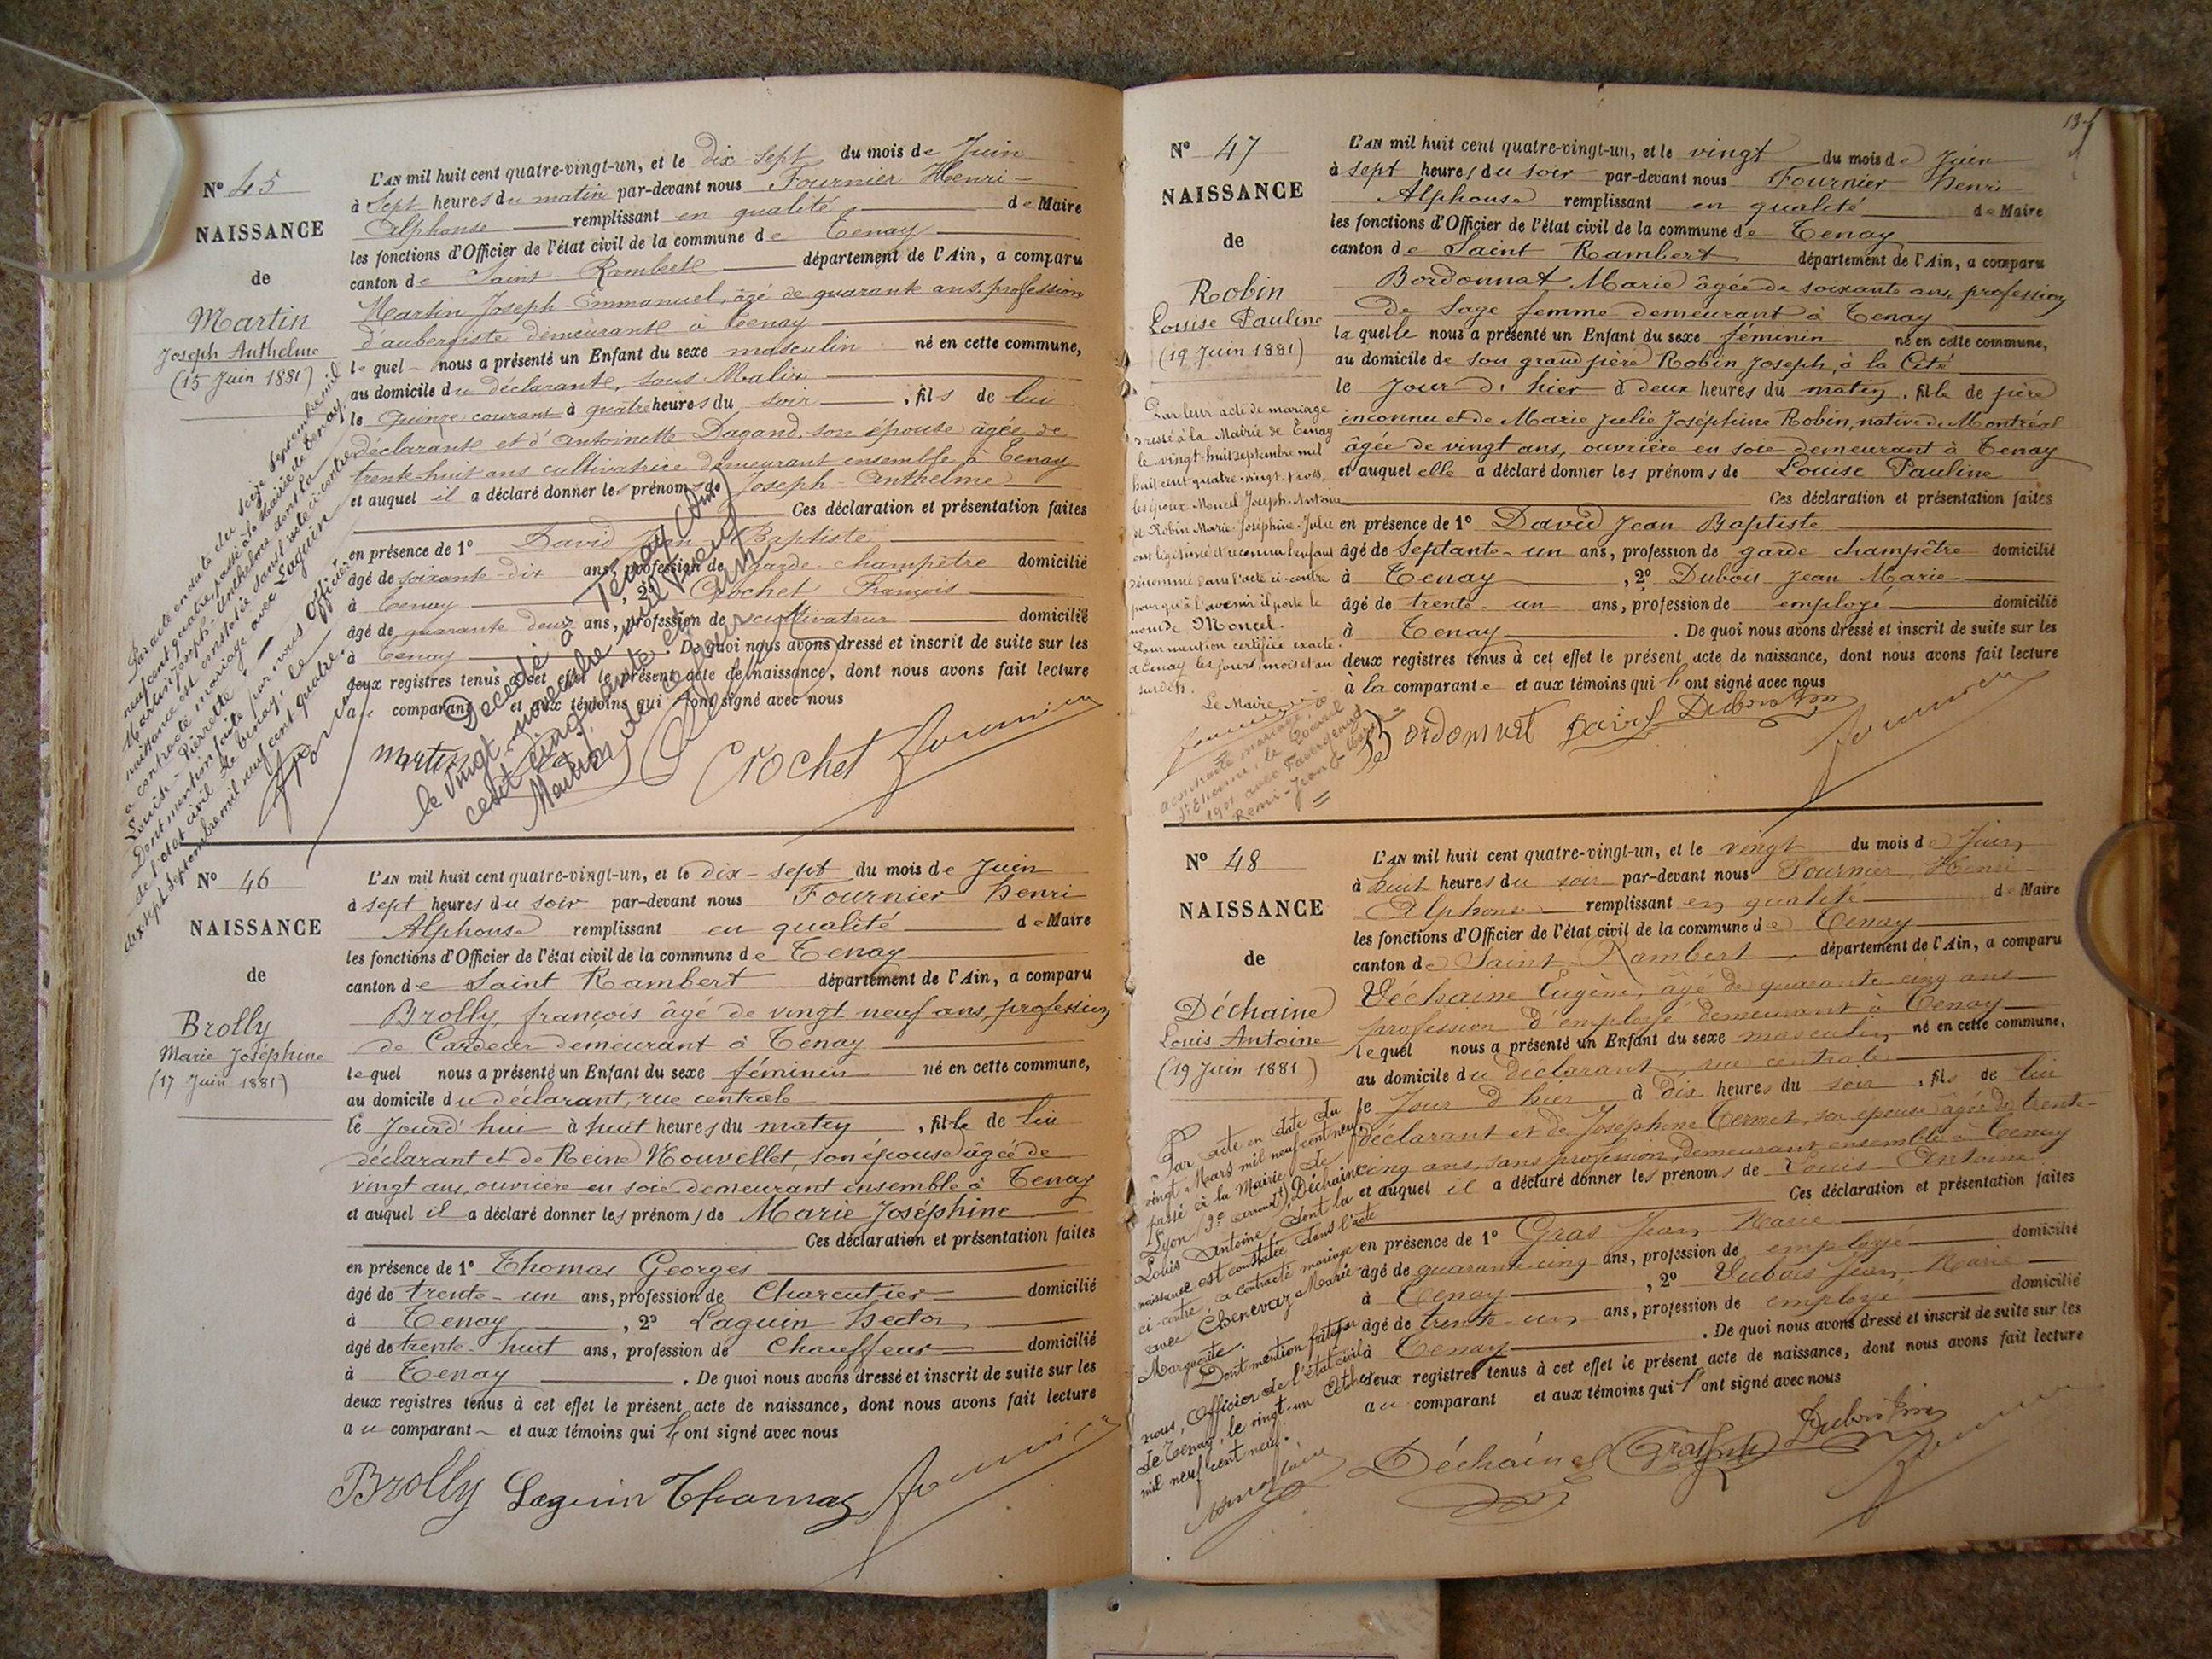 Nº 45
NAISSANCE
de
Martin
Joseph Anthelme
(15 Juin 1881)
L'AN mil huit cent quatre-vingt-un, et le dix-sept du mois de Juin
à Sept heures du matin par-devant nous Fournier Henri
Alphonse remplissant en qualité de Maire
les fonctions d'Officier de l'état civil de la commune de Tenay
canton de Saint Rambert département de l'Ain, a comparu
Martin Joseph-Emmanuel, âgé de quarante ans, profession
d'aubergiste demeurant à Tenay
lequel nous a présenté un Enfant du sexe masculin né en cette commune,
au domicile du déclarant, sous Malix
le Quinze courant à quatre heures du soir, fils de lui
déclarant et d'Antoinette Dagand son épouse âgée de
trente-huit ans cultivatrice demeurant ensemble à Tenay
et auquel il a déclaré donner les prénoms de Joseph-Anthelme
Ces déclaration et présentation faites
en présence de 1º David Jean Baptiste
âgé de soixante-dix ans, profession de garde champêtre domicilié
à Tenay, 2º Crochet François
âgé de quarante deux ans, profession de cultivateur domicilié
à Tenay. De quoi nous avons dressé et inscrit de suite sur les
deux registres tenus à cet effet le présent acte de naissance, dont nous avons fait lecture
au comparant et aux témoins qui l'ont signé avec nous
Martin Crochet Fournier
Par acte en date du seize Septembre mil
neuf cent quatre, passé à la Mairie de Tenay
Martin Joseph-Anthelme dont la
naissance est constatée dans l'acte ci-contre
a contracté mariage avec Laguin
Louise-Pierrette.
Dont mention faite par nous Officier
de l'état civil de Tenay, le
dix sept Septembre mil neuf cent quatre.
Décédé à Tenay (Ain)
le vingt novembre mil neuf
cent cinquante cinq
Mention de ce jour
Nº 46
NAISSANCE
de
Brolly
Marie Joséphine
(17 Juin 1881)
L'AN mil huit cent quatre-vingt-un, et le dix-sept du mois de Juin
à sept heures du soir par-devant nous Fournier Henri
Alphonse remplissant en qualité de Maire
les fonctions d'Officier de l'état civil de la commune de Tenay
canton de Saint Rambert département de l'Ain, a comparu
Brolly, françois âgé de vingt neuf ans, profession
de Cardeur demeurant à Tenay
lequel nous a présenté un Enfant du sexe féminin né en cette commune,
au domicile du déclarant, rue centrale
le Jourd'hui à huit heures du matin, fille de lui
déclarant et de Reine Nouvellet, son épouse âgée de
vingt ans, ouvrière en soie demeurant ensemble à Tenay
et auquel il a déclaré donner les prénoms de Marie Joséphine
Ces déclaration et présentation faites
en présence de 1º Thomas Georges
âgé de trente-un ans, profession de Charcutier domicilié
à Tenay, 2º Laguin Hector
âgé de trente-huit ans, profession de Chauffeur domicilié
à Tenay. De quoi nous avons dressé et inscrit de suite sur les
deux registres tenus à cet effet le présent acte de naissance, dont nous avons fait lecture
au comparant et aux témoins qui l'ont signé avec nous
Brolly Laguin Thomas Fournier
Nº 47
NAISSANCE
de
Robin
Louise Pauline
(19 Juin 1881)
L'AN mil huit cent quatre-vingt-un, et le vingt du mois de Juin
à sept heures du soir par-devant nous Fournier Henri
Alphonse remplissant en qualité de Maire
les fonctions d'Officier de l'état civil de la commune de Tenay
canton de Saint Rambert département de l'Ain, a comparu
Bordonnat Marie âgée de soixante ans, profession
de Sage femme demeurant à Tenay
laquelle nous a présenté un Enfant du sexe féminin né en cette commune,
au domicile de son grand père Robin Joseph, à la Cité
le Jour d'hier à deux heures du matin, fille de père
inconnu et de Marie Julie Joséphine Robin, native de Montréal
âgée de vingt ans, ouvrière en soie demeurant à Tenay
et auquel elle a déclaré donner les prénoms de Louise Pauline
Ces déclaration et présentation faites
en présence de 1º David Jean Baptiste
âgé de Septante-un ans, profession de garde champêtre domicilié
à Tenay, 2º Dubois Jean Marie
âgé de trente-un ans, profession de employé domicilié
à Tenay. De quoi nous avons dressé et inscrit de suite sur les
deux registres tenus à cet effet le présent acte de naissance, dont nous avons fait lecture
à la comparante et aux témoins qui l'ont signé avec nous
Bordonnat David Dubois Fournier
Par leur acte de mariage
dressé à la Mairie de Tenay
le vingt-huit septembre mil
huit cent quatre-vingt-trois,
les époux Moncel Joseph-Antoine
et Robin Marie-Joséphine-Julie
ont légitimé et reconnu l'enfant
dénommé dans l'acte ci-contre
pour qu'à l'avenir il porte le
nom de Moncel.
Pour mention certifiée exacte
à Tenay les jours, mois et an
susdits.
Le Maire
a contracté mariage à
St Etienne, le
1901 avec
Remi-Jean
Nº 48
NAISSANCE
de
Déchaine
Louis Antoine
(19 Juin 1881)
L'AN mil huit cent quatre-vingt-un, et le vingt du mois de Juin
à huit heures du soir par-devant nous Fournier Henri
Alphonse remplissant en qualité de Maire
les fonctions d'Officier de l'état civil de la commune de Tenay
canton de Saint Rambert département de l'Ain, a comparu
Déchaine Eugène, âgé de quarante cinq ans
profession d'employé demeurant à Tenay
lequel nous a présenté un Enfant du sexe masculin né en cette commune,
au domicile du déclarant, rue centrale
le Jour d'hier à dix heures du soir, fils de lui
déclarant et de Joséphine Termet, son épouse âgée de trente-
cinq ans, sans profession, demeurant ensemble à Tenay
et auquel il a déclaré donner les prénoms de Louis Antoine
Ces déclaration et présentation faites
en présence de 1º Gras Jean Marie
âgé de quarante-cinq ans, profession de employé domicilié
à Tenay, 2º Dubois Jean Marie
âgé de trente-un ans, profession de employé domicilié
à Tenay. De quoi nous avons dressé et inscrit de suite sur les
deux registres tenus à cet effet le présent acte de naissance, dont nous avons fait lecture
au comparant et aux témoins qui l'ont signé avec nous
Déchaine Gras Dubois Fournier
Par acte en date du
vingt Mars mil neuf cent neuf,
passé à la Mairie de
Lyon (3e arrondt) Déchaine
Louis Antoine, dont la
naissance est constatée dans l'acte
ci-contre, a contracté mariage
avec Chenevaz Marie
Marguerite.
Dont mention faite par
nous, Officier de l'état civil
de Tenay, le vingt-un Octobre
mil neuf cent neuf.